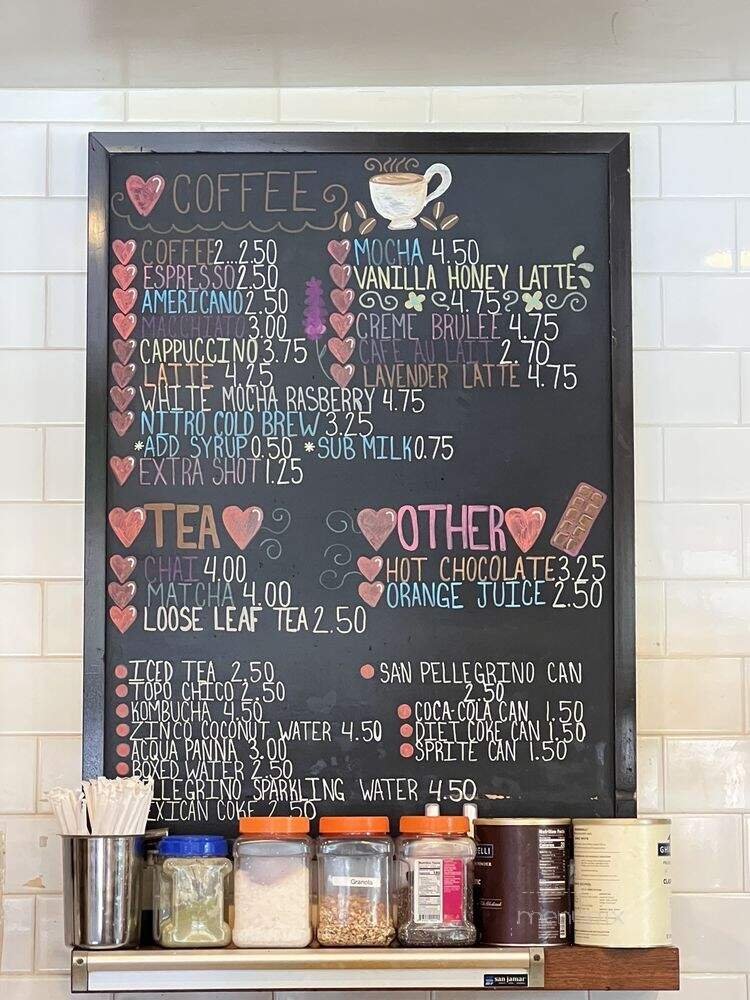 COFFEE
COFFEE 2...2.50
ESPRESSO 2.50
AMERICANO 2.50
MACCHIATO 3.00
CAPPUCCINO 3.75
LATTE 4.25
WHITE MOCHA RASBERRY 4.75
NITRO COLD BREW 3.25
*ADD SYRUP 0.50 *SUB MILK 0.75
EXTRA SHOT 1.25
MOCHA 4.50
VANILLA HONEY LATTE
4.75
CREME BRULEE 4.75
CAFE AU LAIT 2.70
LAVENDER LATTE 4.75
TEA
CHAI 4.00
MATCHA 4.00
LOOSE LEAF TEA 2.50
OTHER
HOT CHOCOLATE 3.25
ORANGE JUICE 2.50
ICED TEA 2.50
TOPO CHICO 2.50
KOMBUCHA 4.50
ZINCO COCONUT WATER 4.50
ACQUA PANNA 3.00
BOXED WATER 2.50
ELLEGRINO SPARKLING WATER 4.50
EXICAN COKE 2.50
SAN PELLEGRINO CAN
2.50
COCA-COLA CAN 1.50
DIET COKE CAN 1.50
SPRITE CAN 1.50
Granola
Nutrition Facts
ELLI
GH
san jamar